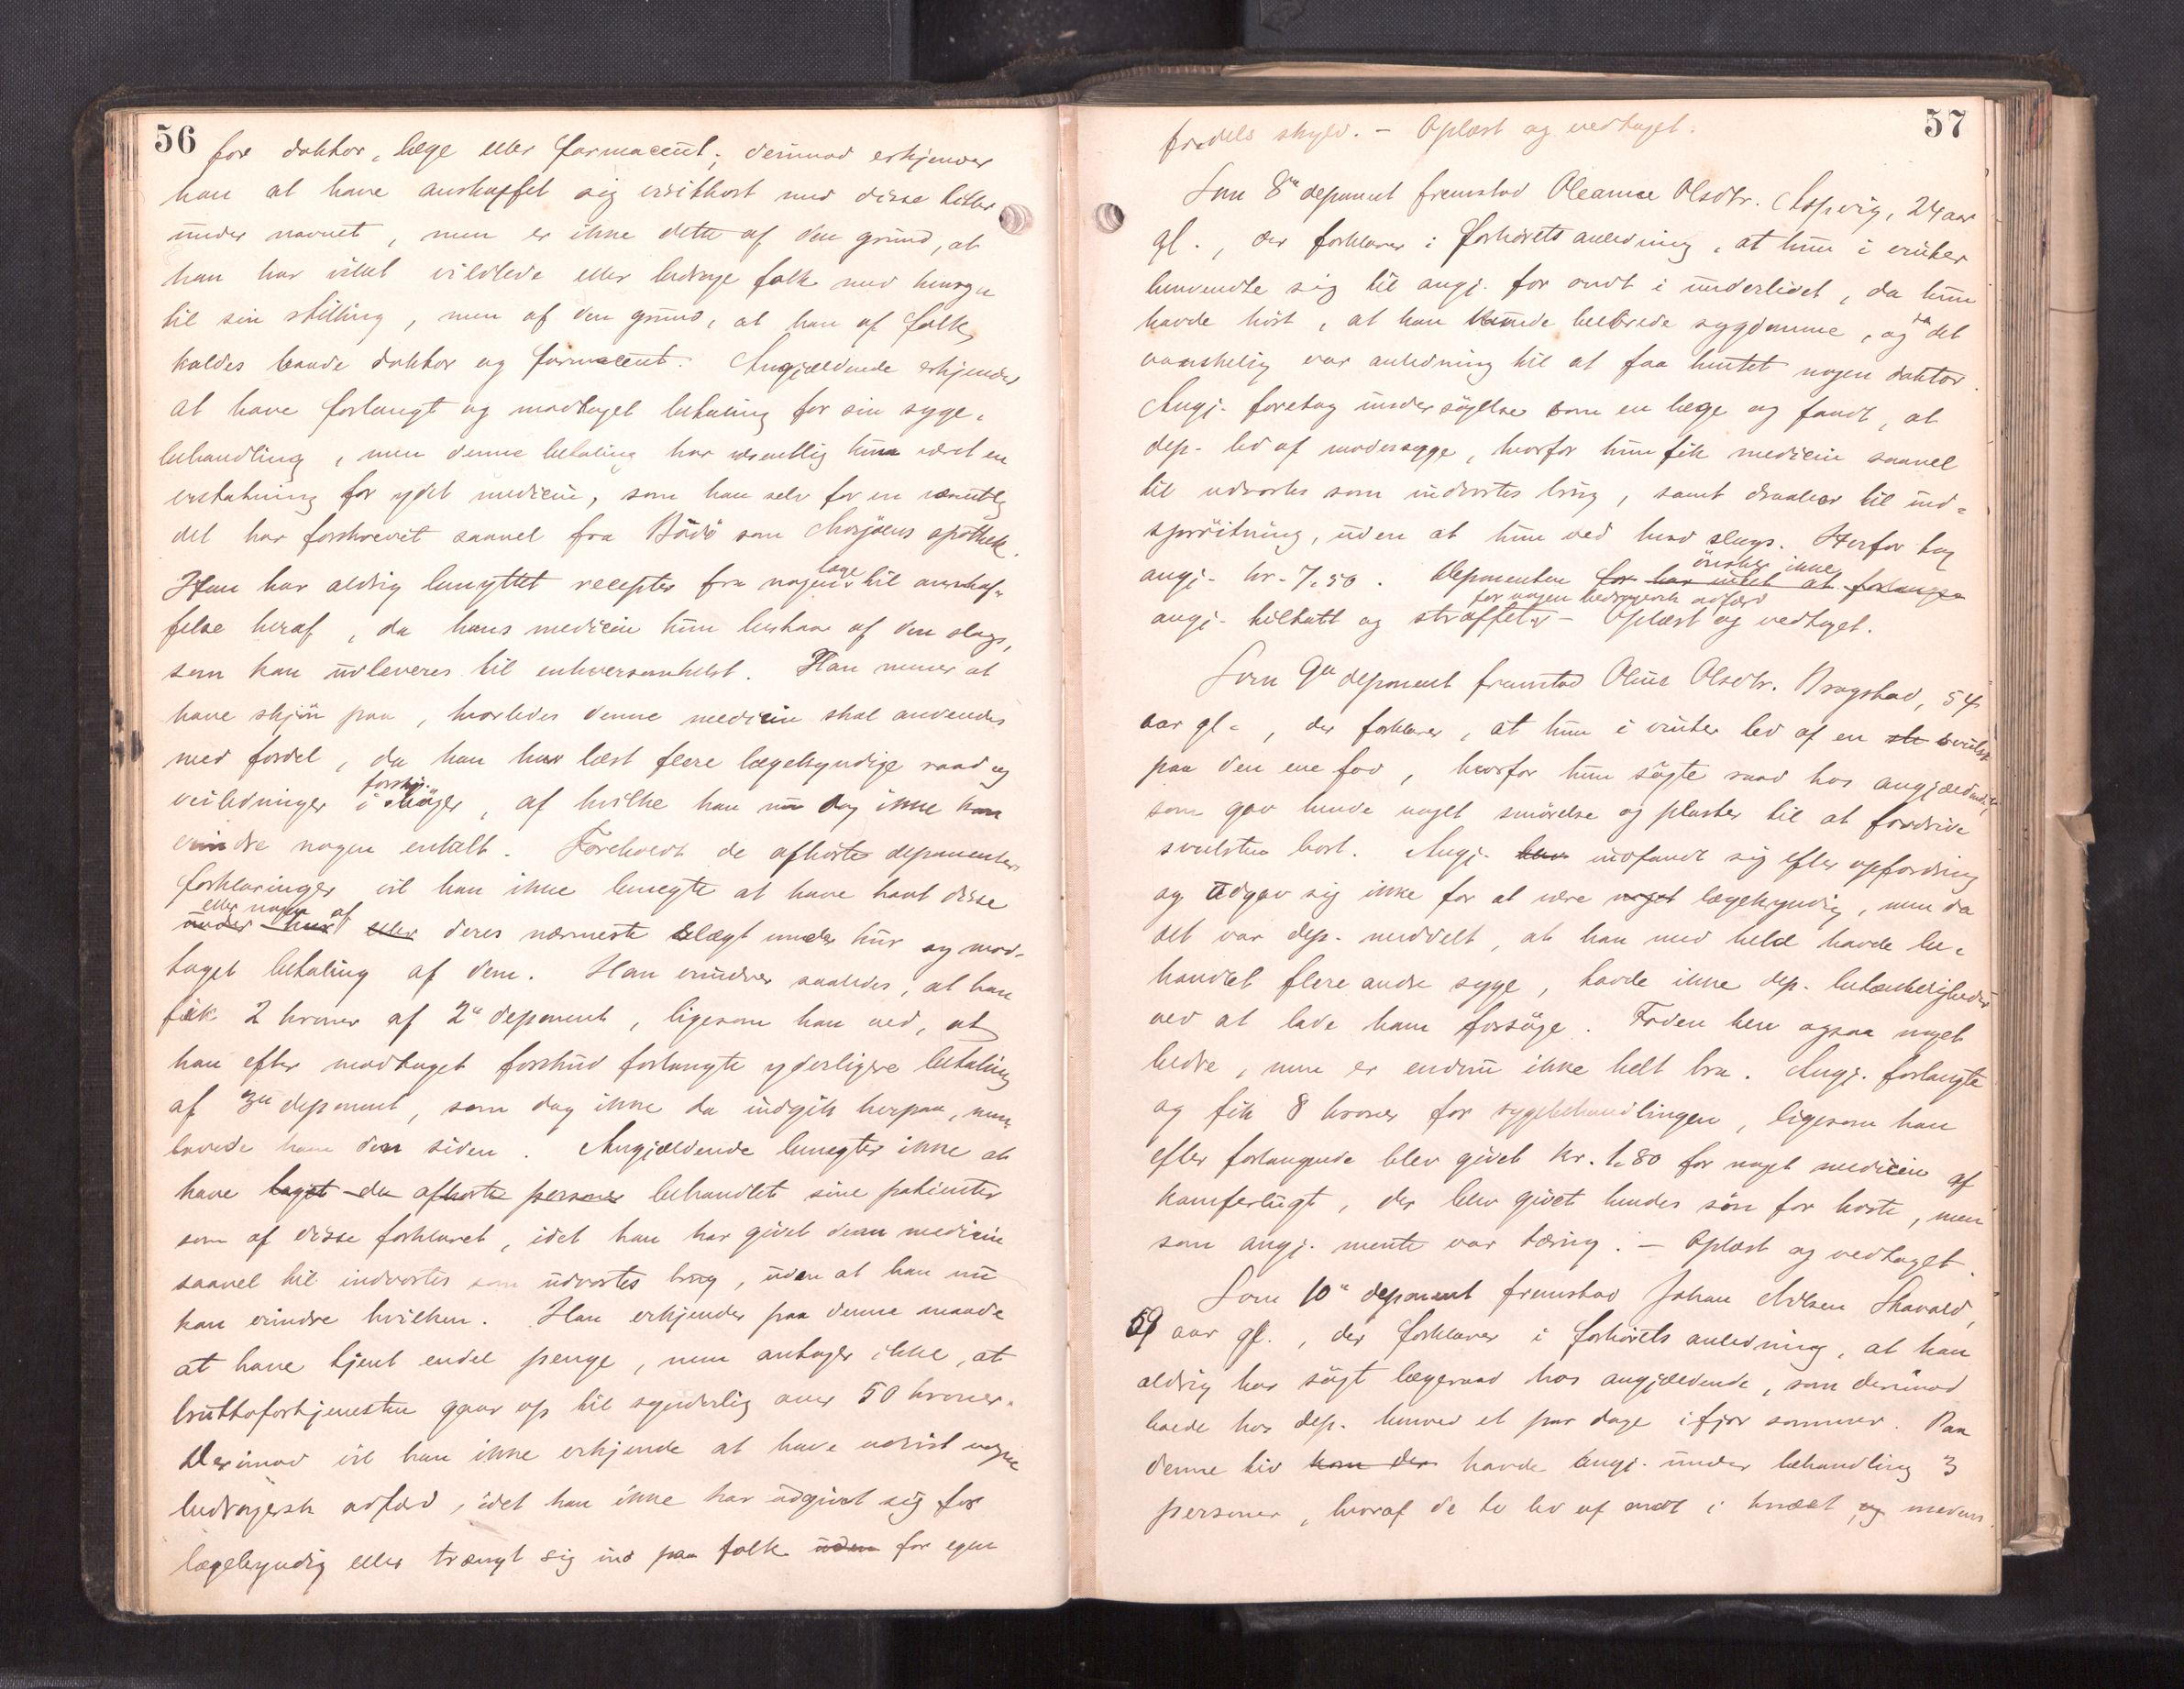 56
for doktor, læge eller farmaceut; derimod erkjender
han at have anskaffet sig visitkort med disse titler
under navnet, men er ikke dette af den grund, at
han har villet vildlede eller bedrage folk med hensyn
til sin stilling, men af den grund, at han af folk
kaldes baade doktor og farmaceut. Angjældende erkjender
at have forlangt og modtaget betaling for sin syge-
behandling, men denne betaling har væsentlig kun været en
erstatning for ydet medicin, som han selv for en væsentlig
del har forskrevet saavel fra Bödö som Mosjöens apothek.
Han har aldrig benyttet recepter fra nogen læge til anskaf-
felse heraf, da hans medicin kun bestaar af den slags,
som kan udleveres til enhversomhelst. Han mener at
have skjön paa, hvorledes denne medicin skal anvendes
med fordel, da han har læst flere lægekyndige raad og
veiledninger i forskj. böger, af hvilke han nu dog ikke kan
erindre nogen enkelt. Foreholdt de afhörte deponenters
forklaringer vil han ikke benegte at have havt disse
under kur eller eller nogen af deres nærmeste slægt under kur og mod-
taget betaling af dem. Han erindrer saaledes, at han
fik 2 kroner af 2n deponent, ligesom han ved, at
han efter modtaget forskud forlangte yderligere betaling
af 3n deponent, som dog ikke da indgik herpaa, men
lovede ham den siden. Angjældende benegter ikke at
have taget de afhörte personer behandlet sine patienter
som af disse forklaret, idet han har givet dem medicin
saavel til indvortes som udvortes brug, uden at han nu
kan erindre hvilken. Han erkjender paa denne maade
at have tjent endel penge, men antager ikke, at
bruttofortjenesten gaar op til synderlig over 50 kroner.
Derimod vil han ikke erkjende at have udvist nogen
bedragersk adfærd, idet han ikke har udgivet sig for
lægekyndig eller trængt sig ind paa folk uden for egen
57
fordels skyld. - Oplæst og vedtaget.
Som 8n deponent fremstod Oleanna Olsdtr. Aspvig, 24 aar
gl., der forklarer i forhörets anledning, at hun i vinter
henvendte sig til angj. for ondt i underlivet, da hun
havde hört, at han kunde helbrede sygdomme, og da det
vanskelig var anledning til at faa hentet nogen doktor.
Angj. foretog undersögelse som en læge og fandt, at
dep. led af modersyge, hvorfor hun fik medicin saavel
til udvortes som indvortes brug, samt draaber til ind-
spröitning, uden at hun ved hvad slags. Herfor tog
angj. kr. 7.50. Deponenten for har intet at forlange önsker ikke
angj. tiltalt og straffet for nogen bedragersk adfærd - Oplæst og vedtaget.
Som 9n deponent fremstod Oline Olsdtr. Bragstad, 54
aar gl., der forklarer, at hun i vinter led af en sle svulst
paa den ene fod, hvorfor hun sögte raad hos angjældende,
som gav hende noget smörelse og plaster til at fordrive
svulsten bort. Angj. blev indfandt sig efter opfordring
og udgav sig ikke for at være noget lægekyndig, men da
det var dep. meddelt, at han med held havde be-
handlet flere andre syge, havde ikke dep. betænkeligheder
ved at lade ham forsöge. Foden blev ogsaa noget
bedre, men er endnu ikke helt bra. Angj. forlangte
og fik 8 kroner for sygebehandlingen, ligesom han
efter forlangende blev givet kr. 1.80 for noget medicin af
kamferlugt, der blev givet hendes sön for hoste, men
som angj. mente var tæring. - Oplæst og vedtaget.
Som 10n deponent fremstod Johan Nilsen Skavald,
59 aar gl., der forklarer i forhörets anledning, at han
aldrig har sögt lægeraad hos angjældende, som derimod
boede hos dep. henved et par dage ifjor sommer. Paa
denne tid han der havde angj. under behandling 3
personer, hvoraf de to led af ondt i knæet, og medens